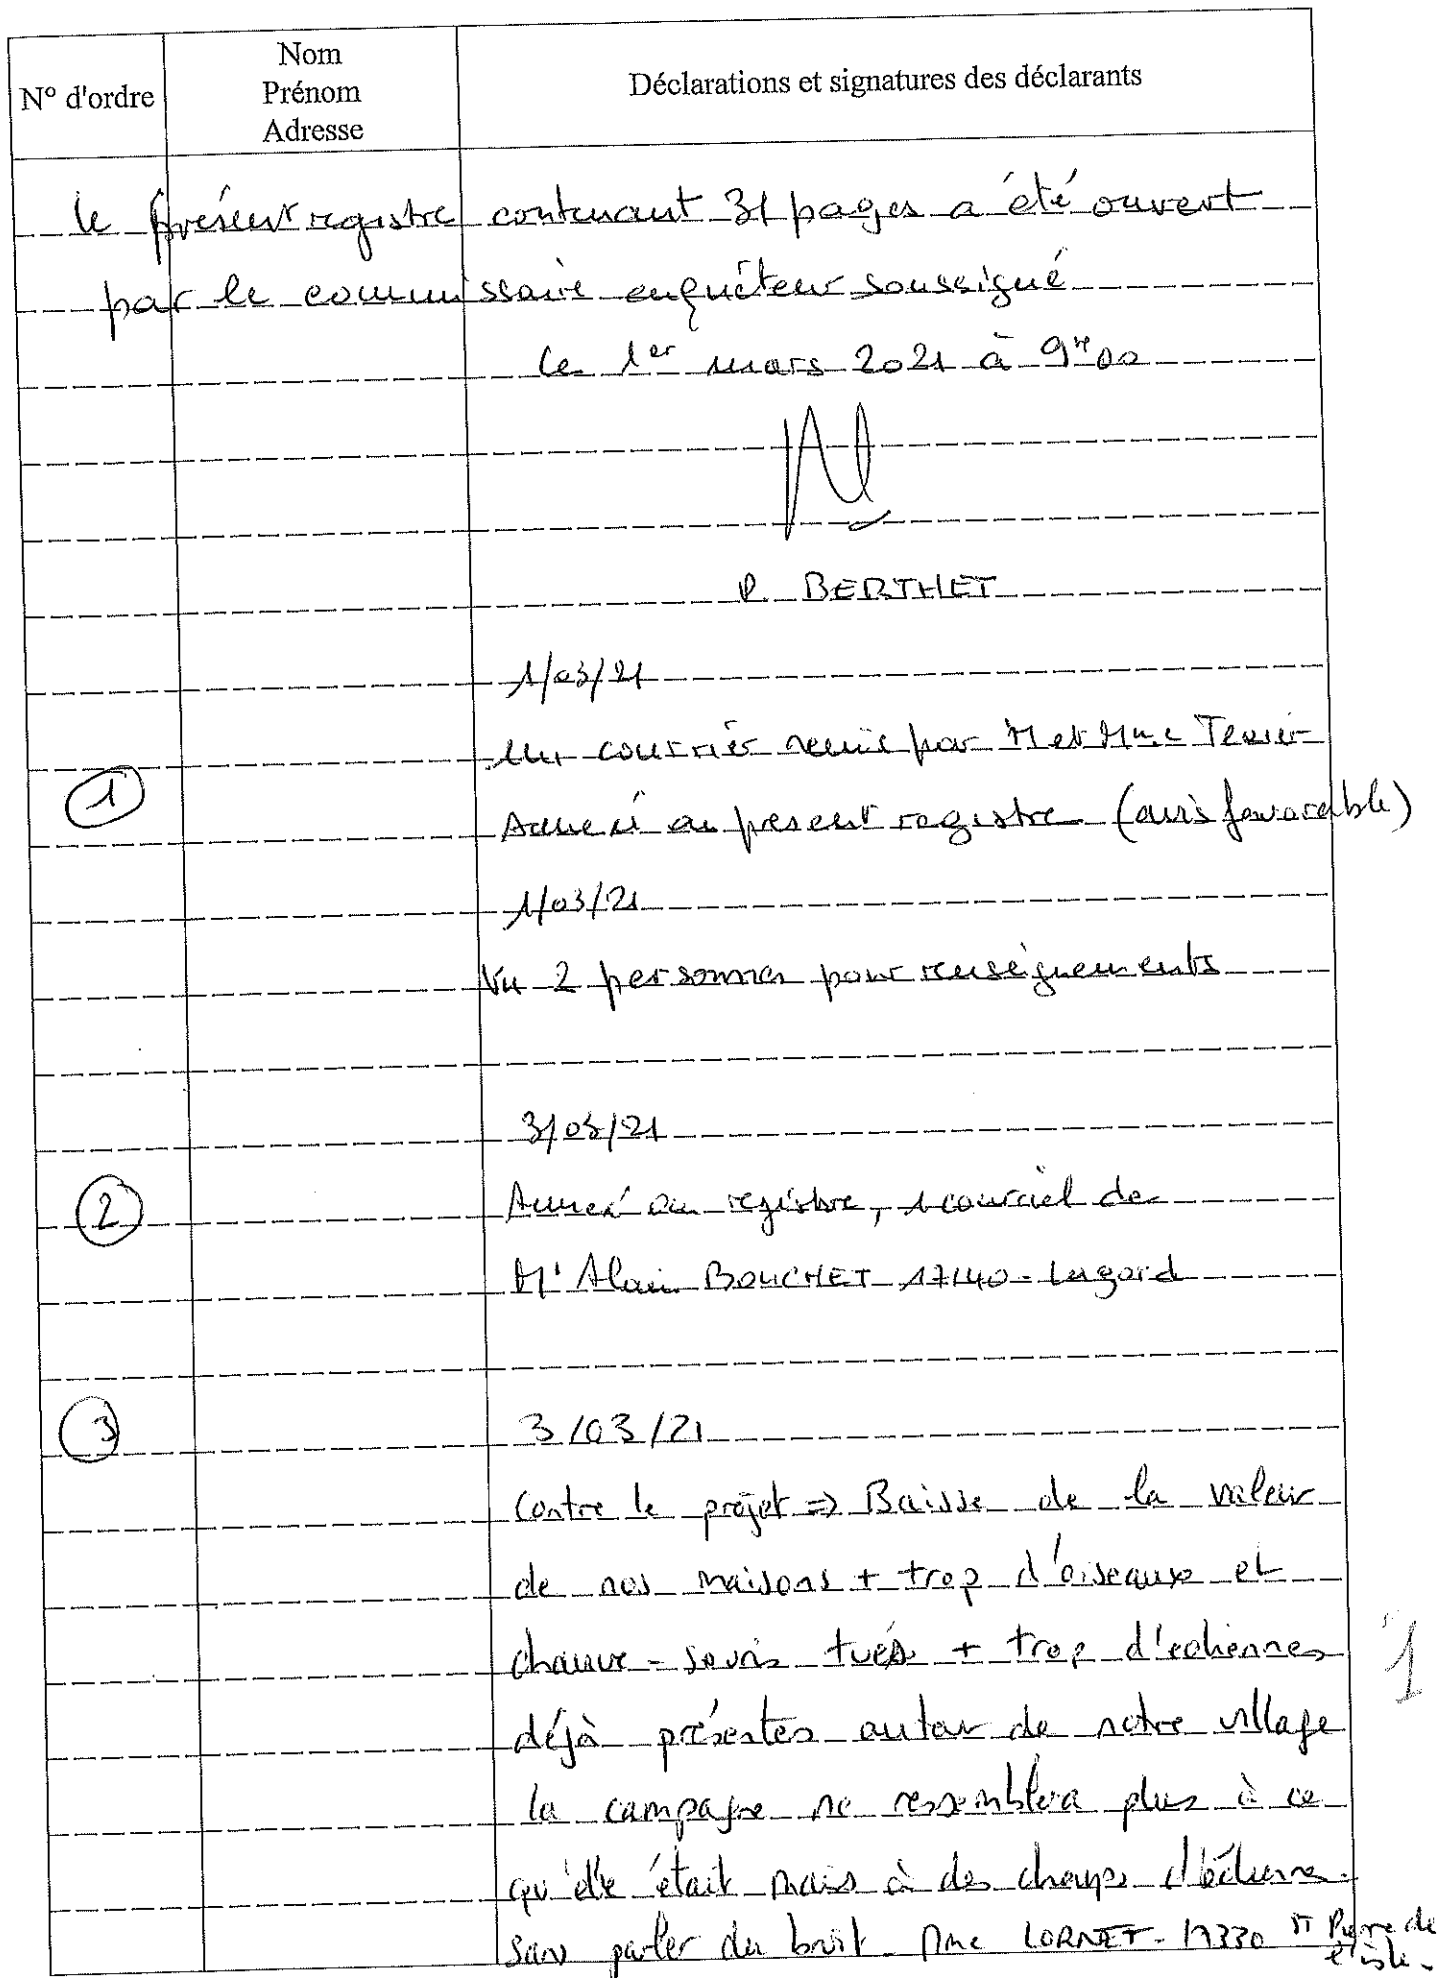 N° d'ordre
Nom
Prénom
Adresse
Déclarations et signatures des déclarants
le présent registre contenant 31 pages a été ouvert
par le commissaire enquêteur soussigné
le 1er mars 2021 à 9H00
P. BERTHET
1/03/21
un courrier remis par M et Mme
1
Annexé au présent registre (avis favorable)
1/03/21
Vu 2 personnes pour renseignements
3/03/21
2
Annexé au registre, 1 courriel de
Mr Alain BOUCHET 17140 - Lagord
3
3/03/21
Contre le projet => Baisse de la valeur
de nos maisons + trop d'oiseaux et
chauve-souris tués + trop d'éoliennes
déjà présentes autour de notre village
la campagne ne ressemblera plus à ce
qu'elle était mais à des champs d'éolienne.
sans parler du bruit. Mme LORNET - 17330 St Pierre de
l'isle.
1